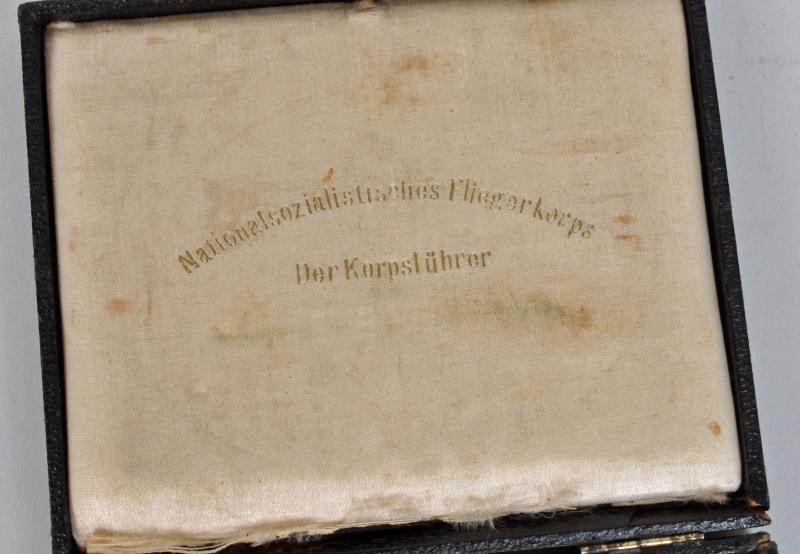 Nationalsozialistisches Fliegerkorps
Der Korpsführer